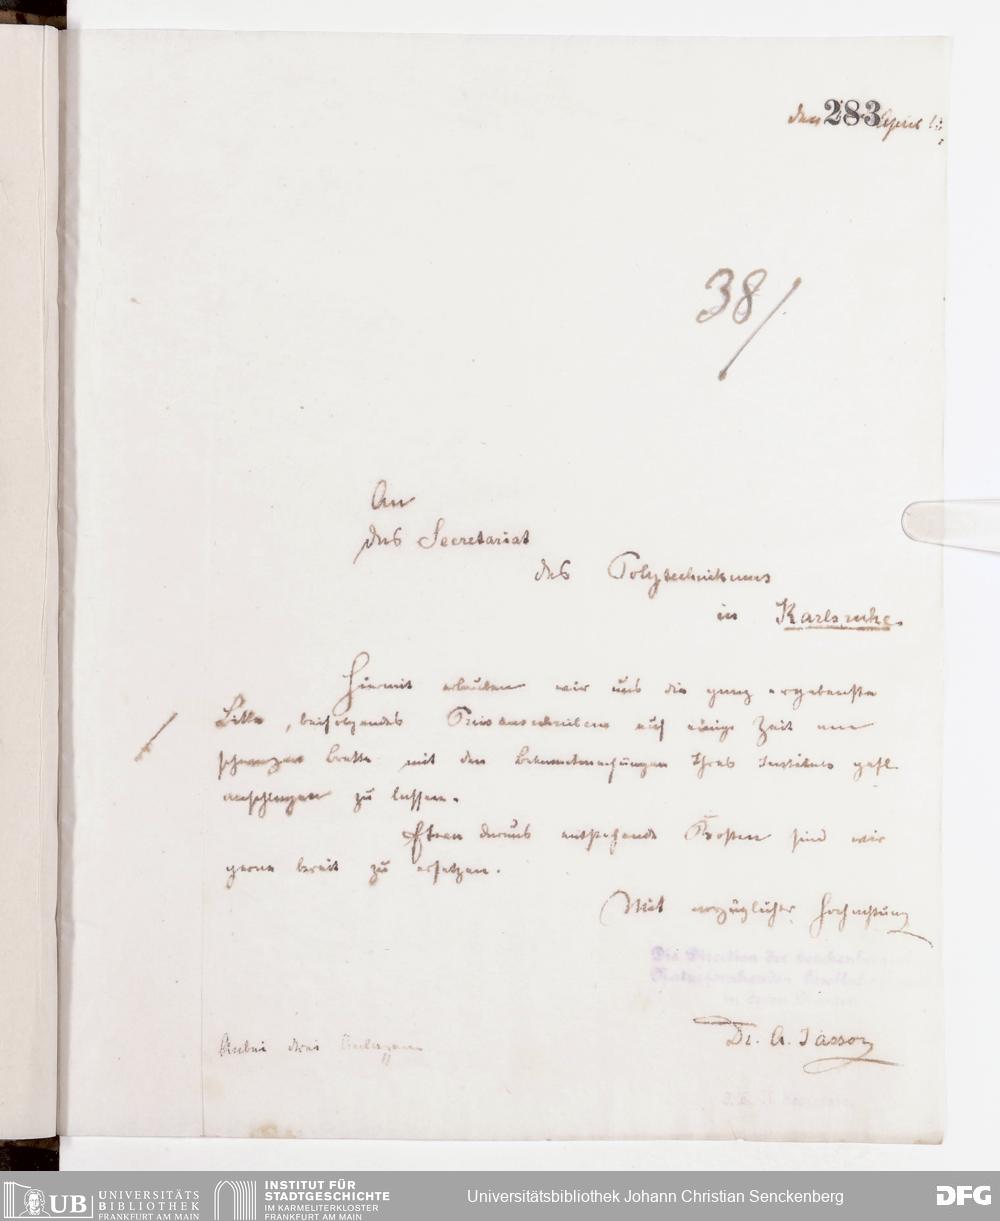 den 283 April
38/
An
das Secretariat
des Polytechnikums
in Karlsruhe.
Hiermit erlauben wir uns die ganz ergebenste
Bitte, beifolgendes Preisausschreiben auf einige Zeit am
schwarzen Brette mit den Bekanntmachungen Ihres Institutes gefl.
anschlagen zu lassen.
Etwa daraus entstehende Kosten sind wir
gerne bereit zu ersetzen.
Mit vorzüglichster Hochachtung
Die Direction der Senckenbergischen
Naturforschenden Gesellschaft
in deren Namen
Dr. A. Jassoy
Anbei drei Anlagen
UB UNIVERSITÄTS
BIBLIOTHEK
FRANKFURT AM MAIN
INSTITUT FÜR
STADTGESCHICHTE
IM KARMELITERKLOSTER
FRANKFURT AM MAIN
Universitätsbibliothek Johann Christian Senckenberg
DFG